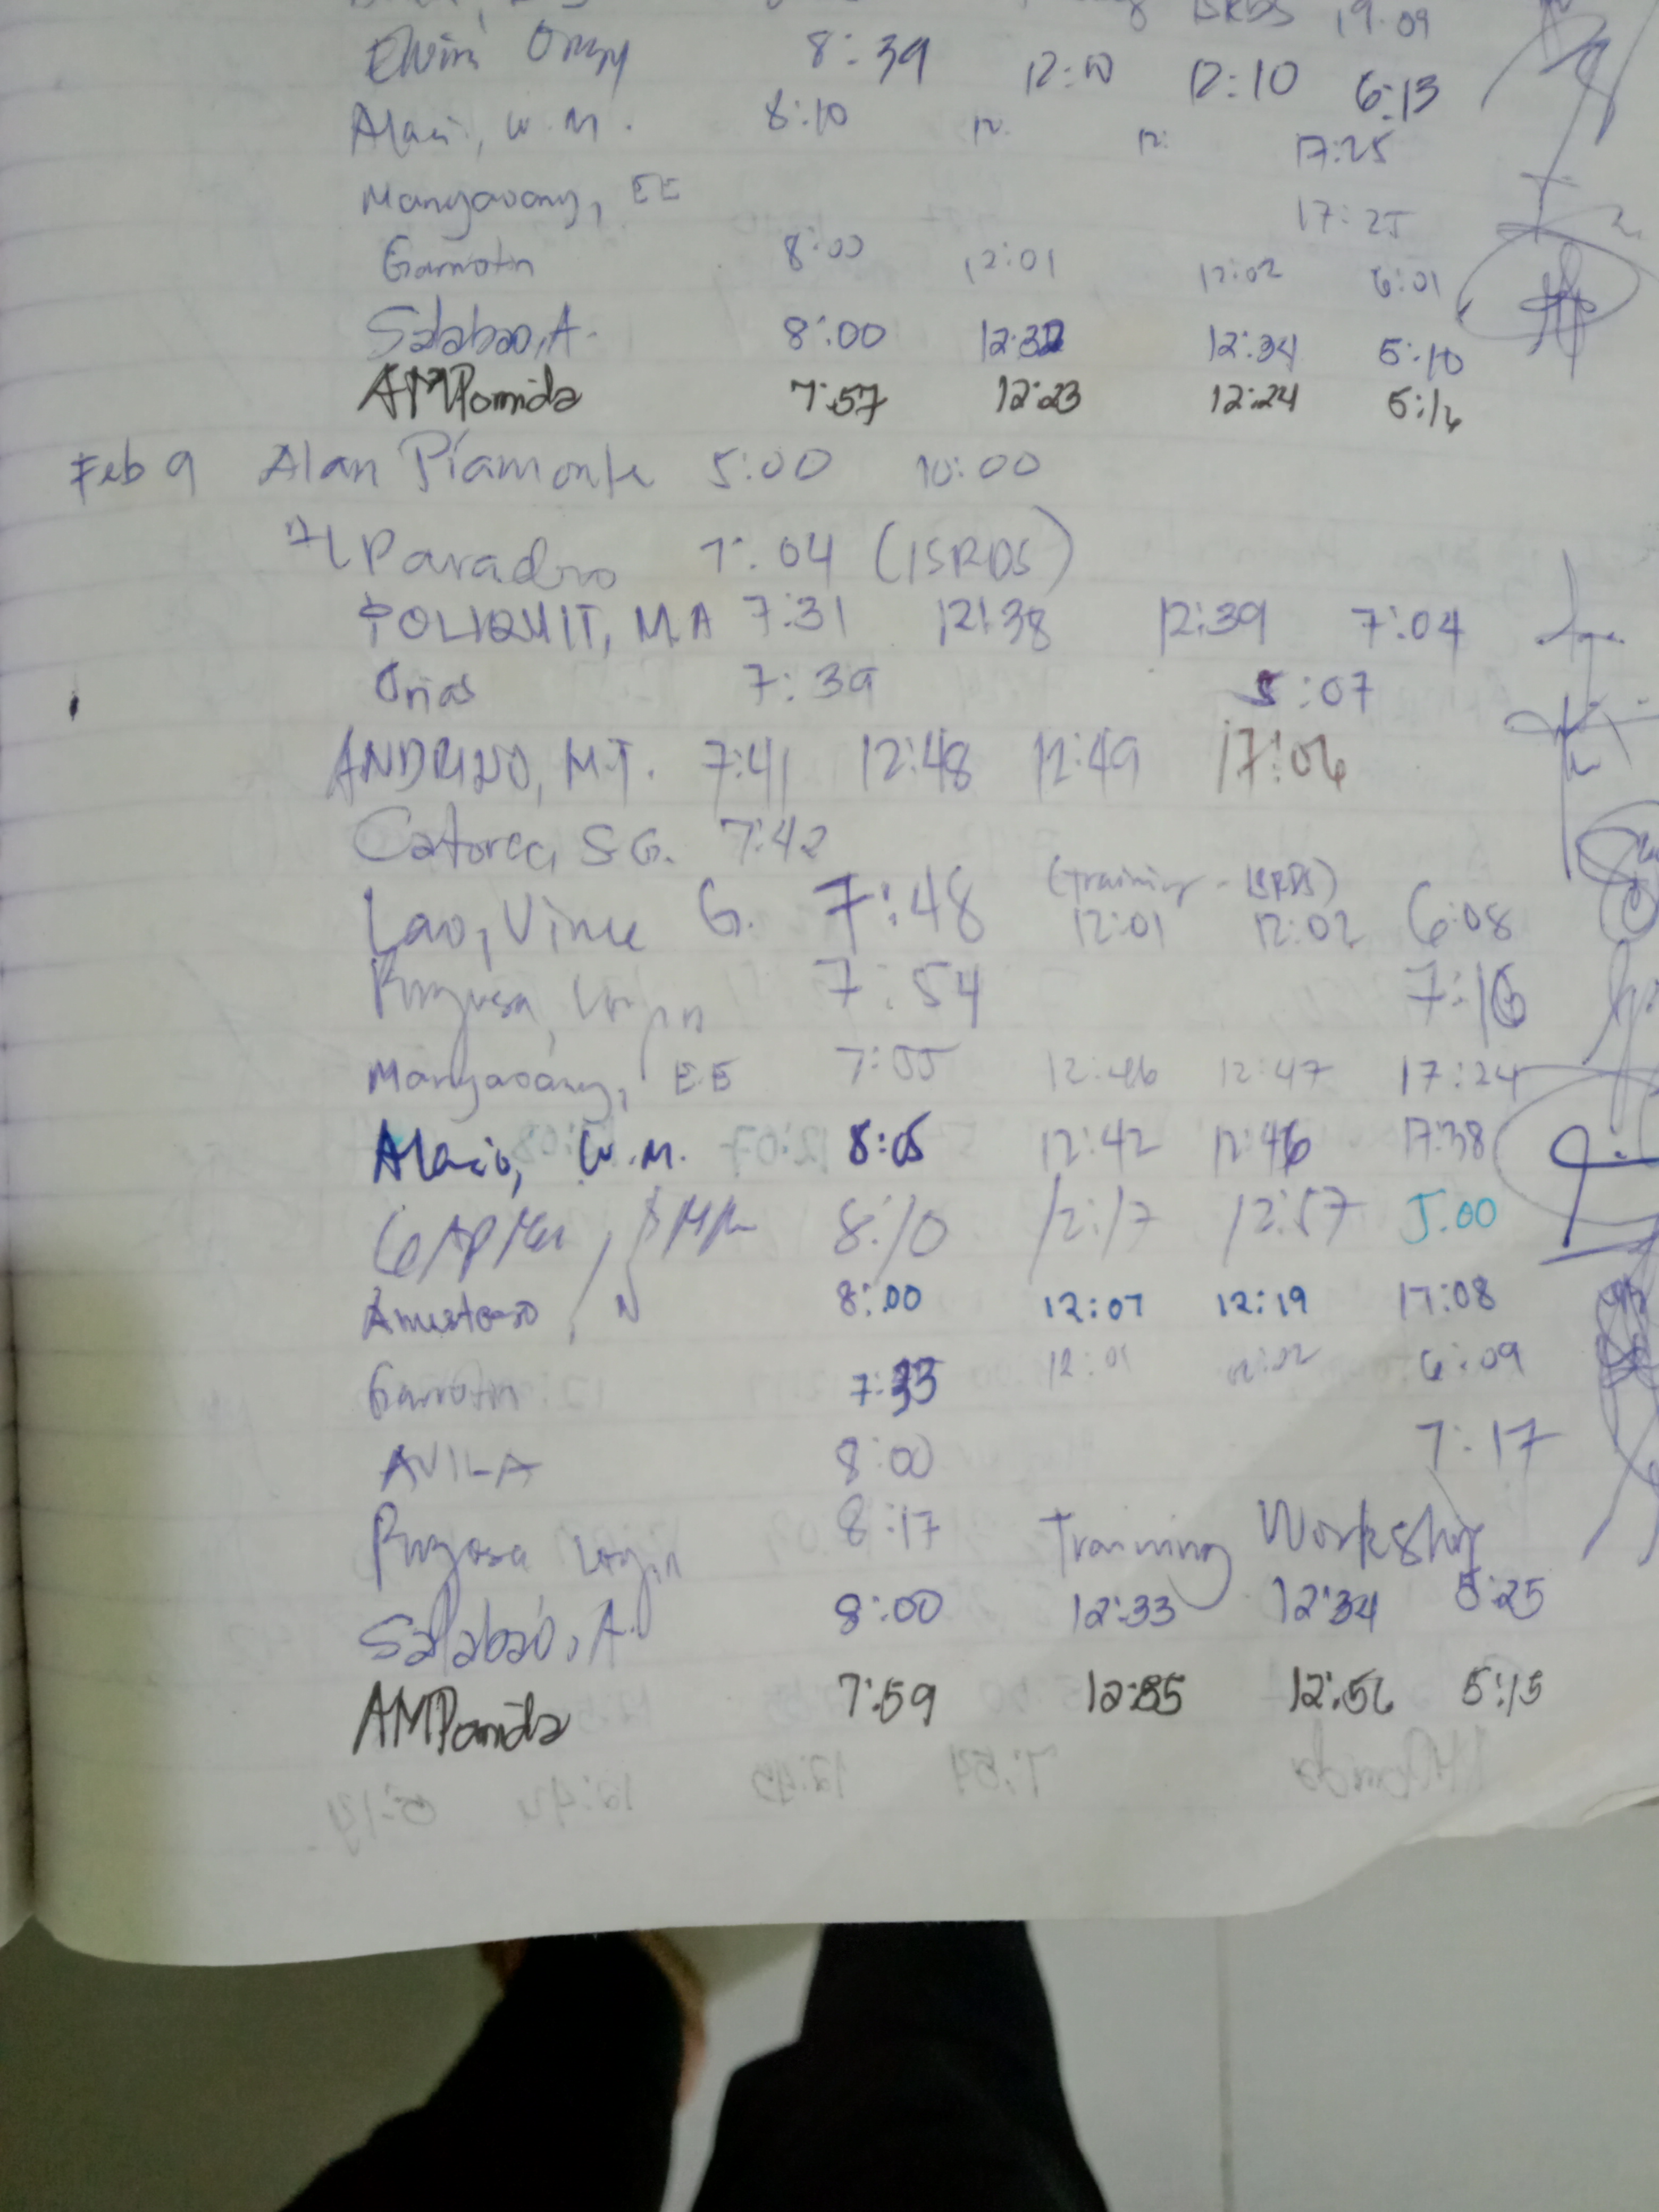 ISRDS 19:09
Elvira Orny 8:39 12:10 12:10 6:13
Alaci, W.M. 8:10 12: 12: 17:25
Mangaoang, EE 17:25
Garrotin 8:00 12:01 12:02 6:01
Salabao, A. 8:00 12:32 12:34 5:10
AMPomida 7:57 12:23 12:24 5:16
Feb 9 Alan Piamonte 5:00 10:00
Paradero 7:04 (ISRDS)
POLIQUIT, M.A 7:31 12:38 12:39 7:04
Orias 7:39 5:07
ANDRINO, M.T. 7:41 12:48 12:49 17:06
Catorce, S.G. 7:42
(training - ISRDS)
Lao, Vince G. 7:48 12:01 12:02 6:08
7:54 7:16
Mangaoang, E.E 7:55 12:46 12:47 17:24
Alacio, W.M. 8:05 12:42 12:46 17:38
8:10 12:17 12:57 5.00
8:00 12:07 12:19 17:08
Garrotin 7:33 12:01 6:09
AVILA 8:00 7:17
8:17 Training Workshop
Salabao, A. 8:00 12:33 12:34 5:25
AMPomida 7:59 12:55 12:56 5:15